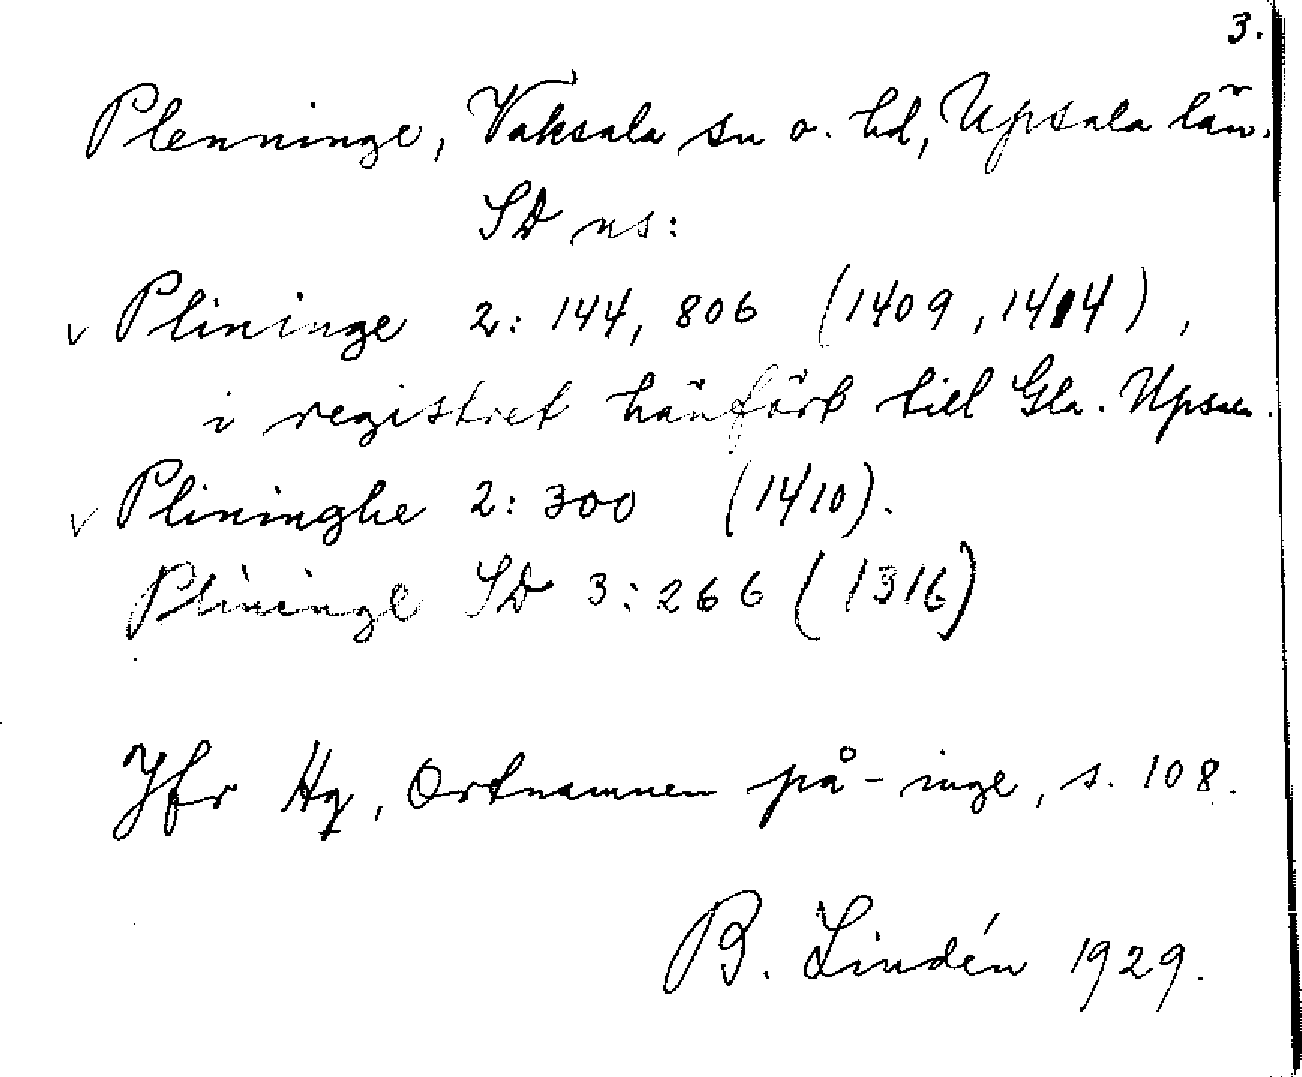 3.
Plenninge, Vaksala sn o. hd, Upsala län.
SD ns:
v Plininge 2: 144, 806 (1409, 1414),
i registret hänfört till Gla. Upsala.
v Plininghe 2: 300 (1410).
Plininge SD 3: 266 (1316)
Jfr Hq, Ortnamnen på -inge, s. 108.
B. Lindén 1929.